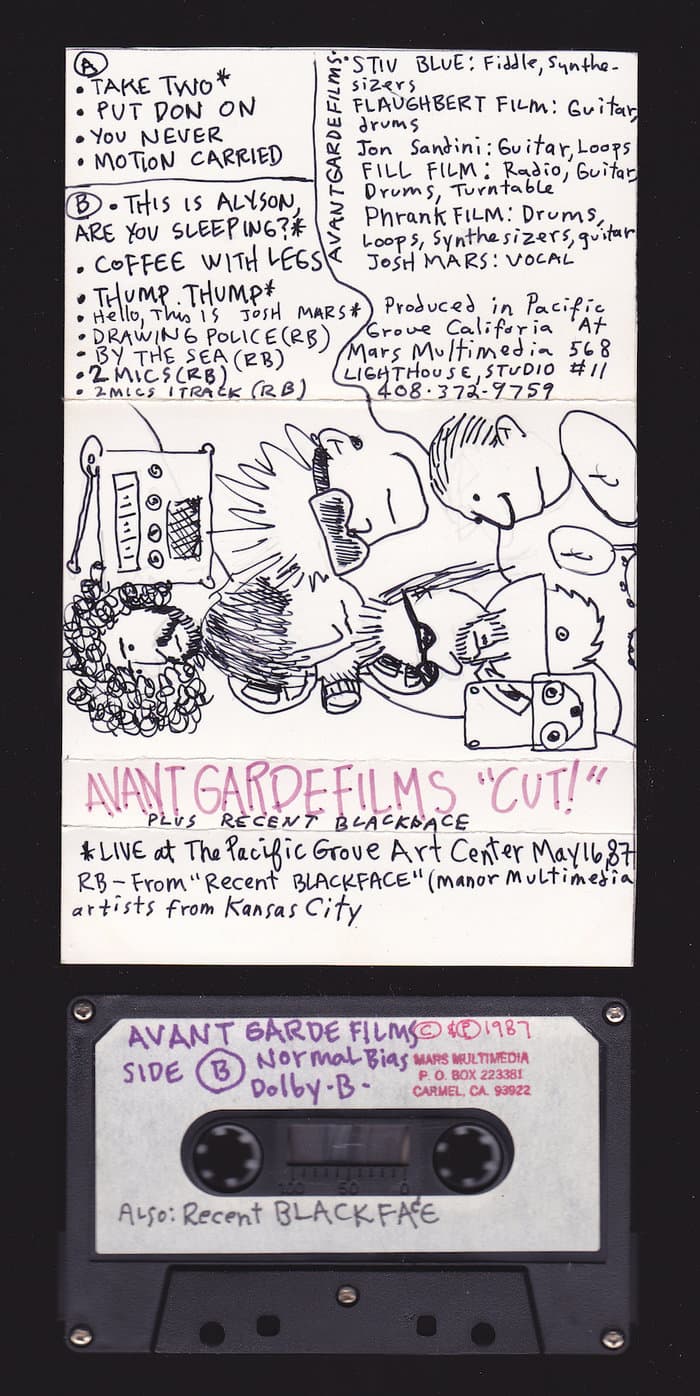 A
• TAKE TWO*
• PUT DON ON
• YOU NEVER
• MOTION CARRIED
B • THIS IS ALYSON,
ARE YOU SLEEPING?*
• COFFEE WITH LEGS
• THUMP THUMP*
• Hello, THIS IS JOSH MARS*
• DRAWING POLICE (RB)
• BY THE SEA (RB)
• 2 MICS (RB)
• 2 MICS 1 TRACK (RB)
AVANTGARDEFILMS:
• STIV BLUE: Fiddle, Synthe-
sizers
FLAUGHBERT FILM: Guitar,
drums
Jon Sandini: Guitar, Loops
FILL FILM: Radio, Guitar
Drums, Turntable
Phrank FILM: Drums,
Loops, Synthesizers, guitar
JOSH MARS: VOCAL
Produced in Pacific
Grove Califoria At
Mars Multimedia 568
LIGHTHOUSE, STUDIO #11
408·372·9759
AVANT GARDEFILMS "CUT!"
PLUS RECENT BLACKFACE
*LIVE at The Pacific Grove Art Center May 16, 87
RB - From "Recent BLACKFACE" (manor Multimedia
artists from Kansas City
AVANT GARDE FILMS © & ℗ 1987
SIDE B Normal Bias
Dolby·B·
MARS MULTIMEDIA
P. O. BOX 223381
CARMEL, CA. 93922
100 50 0
Also: Recent BLACKFACE